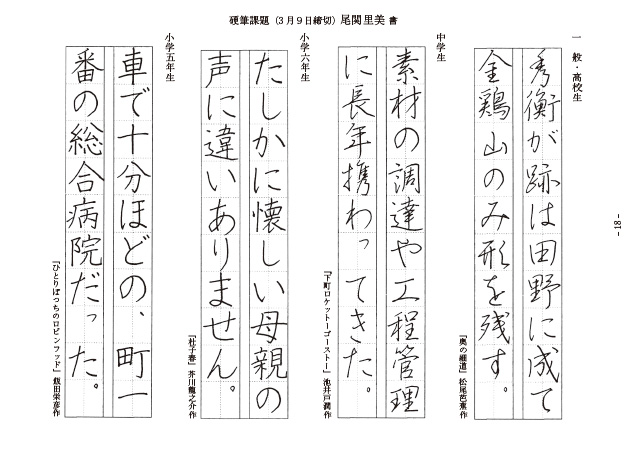 硬筆課題（3月9日締切）尾関里美 書
一般・高校生
秀衡が跡は田野に成て
金鶏山のみ形を残す。
『奥の細道』松尾芭蕉作
中学生
素材の調達や工程管理
に長年携わってきた。
『下町ロケットーゴーストー』池井戸潤作
小学六年生
たしかに懐しい母親の
声に違いありません。
『杜子春』芥川龍之介作
小学五年生
車で十分ほどの、町一
番の総合病院だった。
『ひとりぼっちのロビンフッド』飯田栄彦作
- 18 -